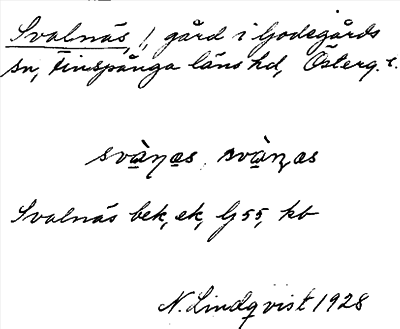 Svalnäs, 1, gård i Godegårds
sn, Finspånga läns hd, Österg. l.
Svalnäs bek, ek, G 55, kb
N. Lindqvist 1928